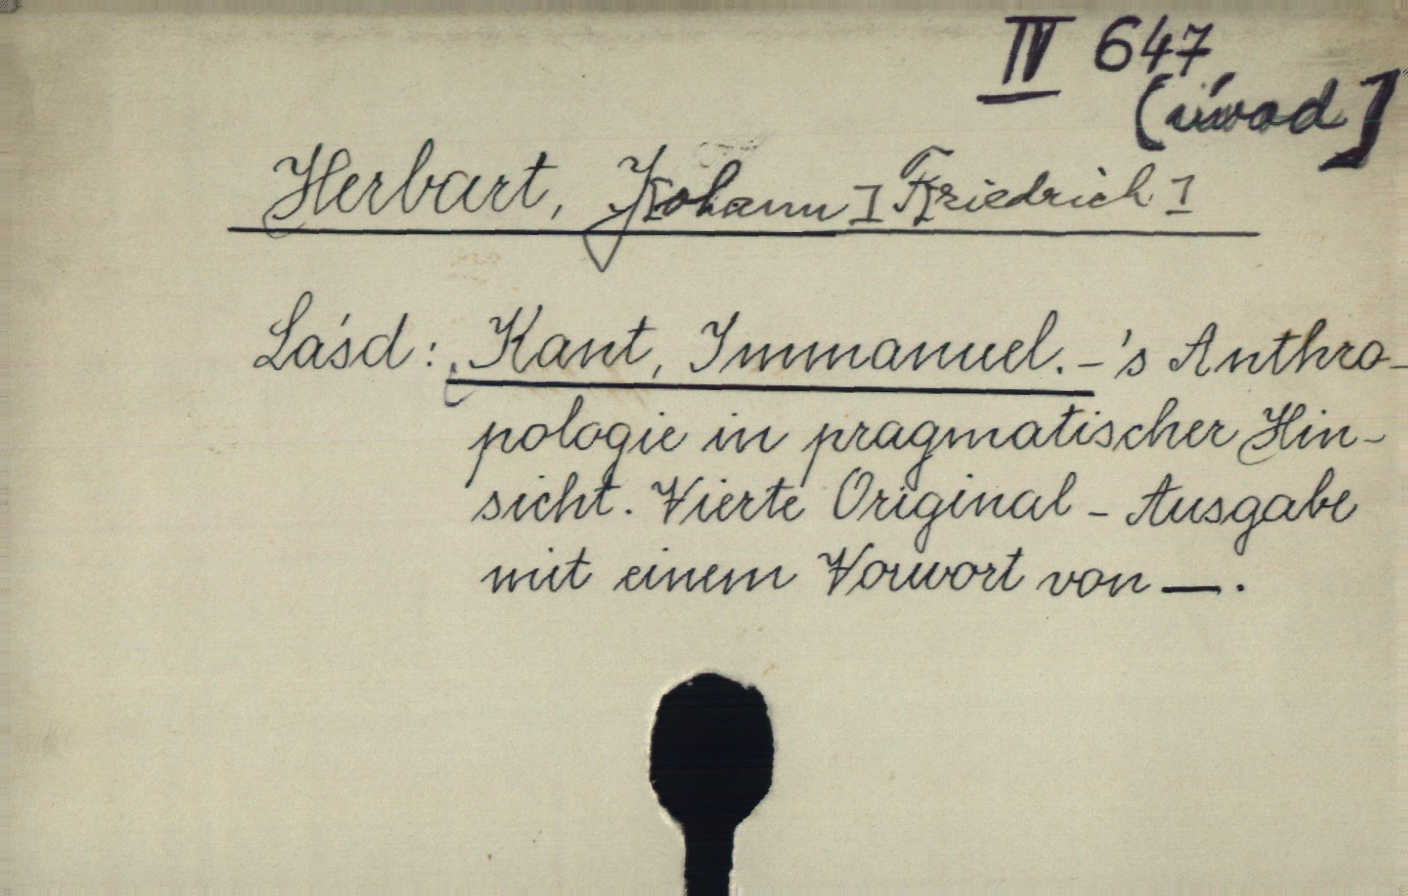 IV 647
(úvod]
Herbart, J[ohann] F[riedrich]
Lásd: Kant, Immanuel. -'s Anthro-
pologie in pragmatischer Hin-
sicht. Vierte Original - Ausgabe
mit einem Vorwort von —.